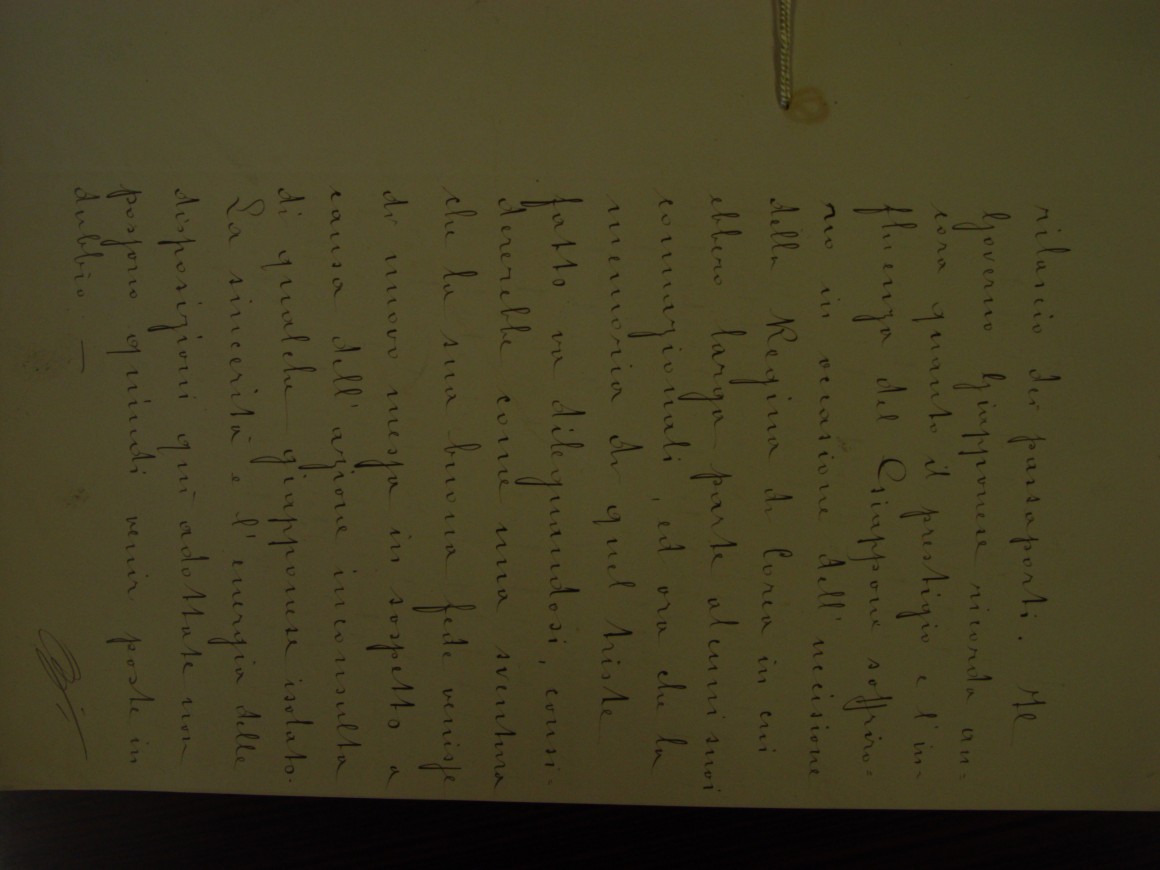 rilascio dei passaporti. Il
Governo Giapponese ricorda an=
cora quanto il prestigio e l'in=
fluenza del Giappone soffriro=
no in occasione dell'uccisione
della Regina di Corea in cui
ebbero larga parte alcuni suoi
connazionali, ed ora che la
memoria di quel triste
fatto va dileguandosi, consi-
dererebbe come una sventura
che la sua buona fede venisse
di nuovo messa in sospetto a
causa dell'azione inconsulta
di qualche giapponese isolato.
La sincerità e l'energia delle
disposizioni quì adottate non
possono quindi venir poste in
dubbio —